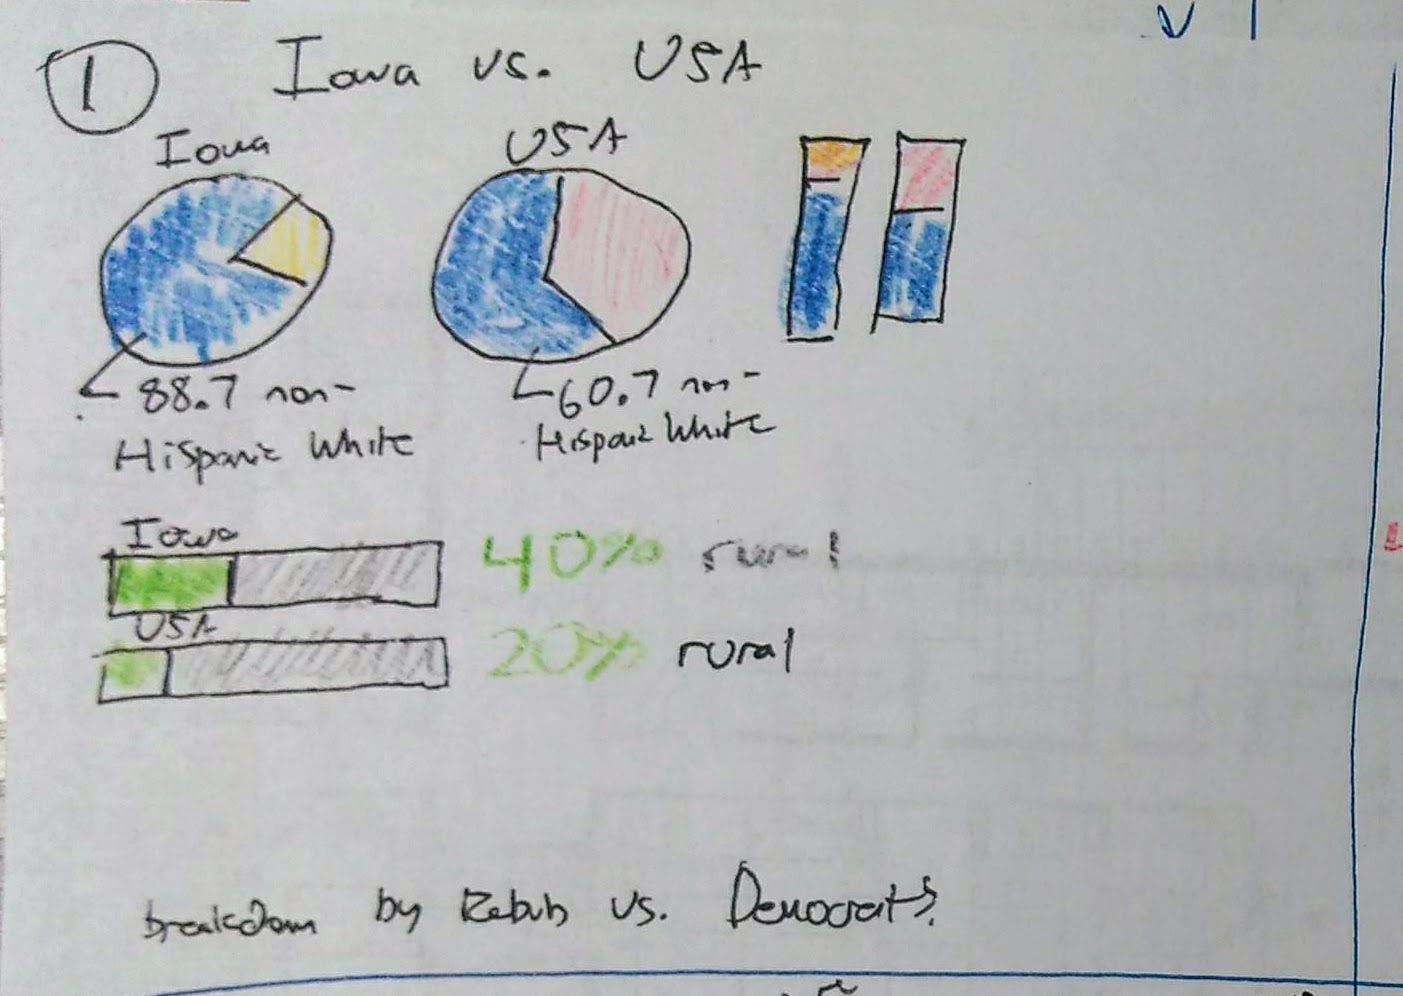 1 Iowa vs. USA
Iowa
USA
88.7 non-
Hispanic White
60.7 non-
Hispanic White
Iowa
40% rural
USA
20% rural
breakdown by Repub vs. Democrats?